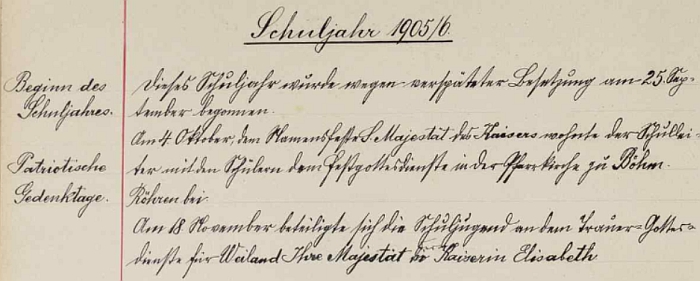 Schuljahr 1905/6.
Beginn des
Schuljahres.
Dieses Schuljahr wurde wegen verspäteter Besetzung am 25. Sep-
tember begonnen.
Am 4 Oktober, dem Namensfeste S. Majestät des Kaisers wohnte der Schullei-
ter mit den Schülern dem Festgottesdienste in der Pfarrkirche zu Böhm.
Röhren bei.
Patriotische
Gedenktage.
Am 18 November beteiligte sich die Schuljugend an dem Trauer-Gottes-
dienste für Weiland Ihre Majestät die Kaiserin Elisabeth